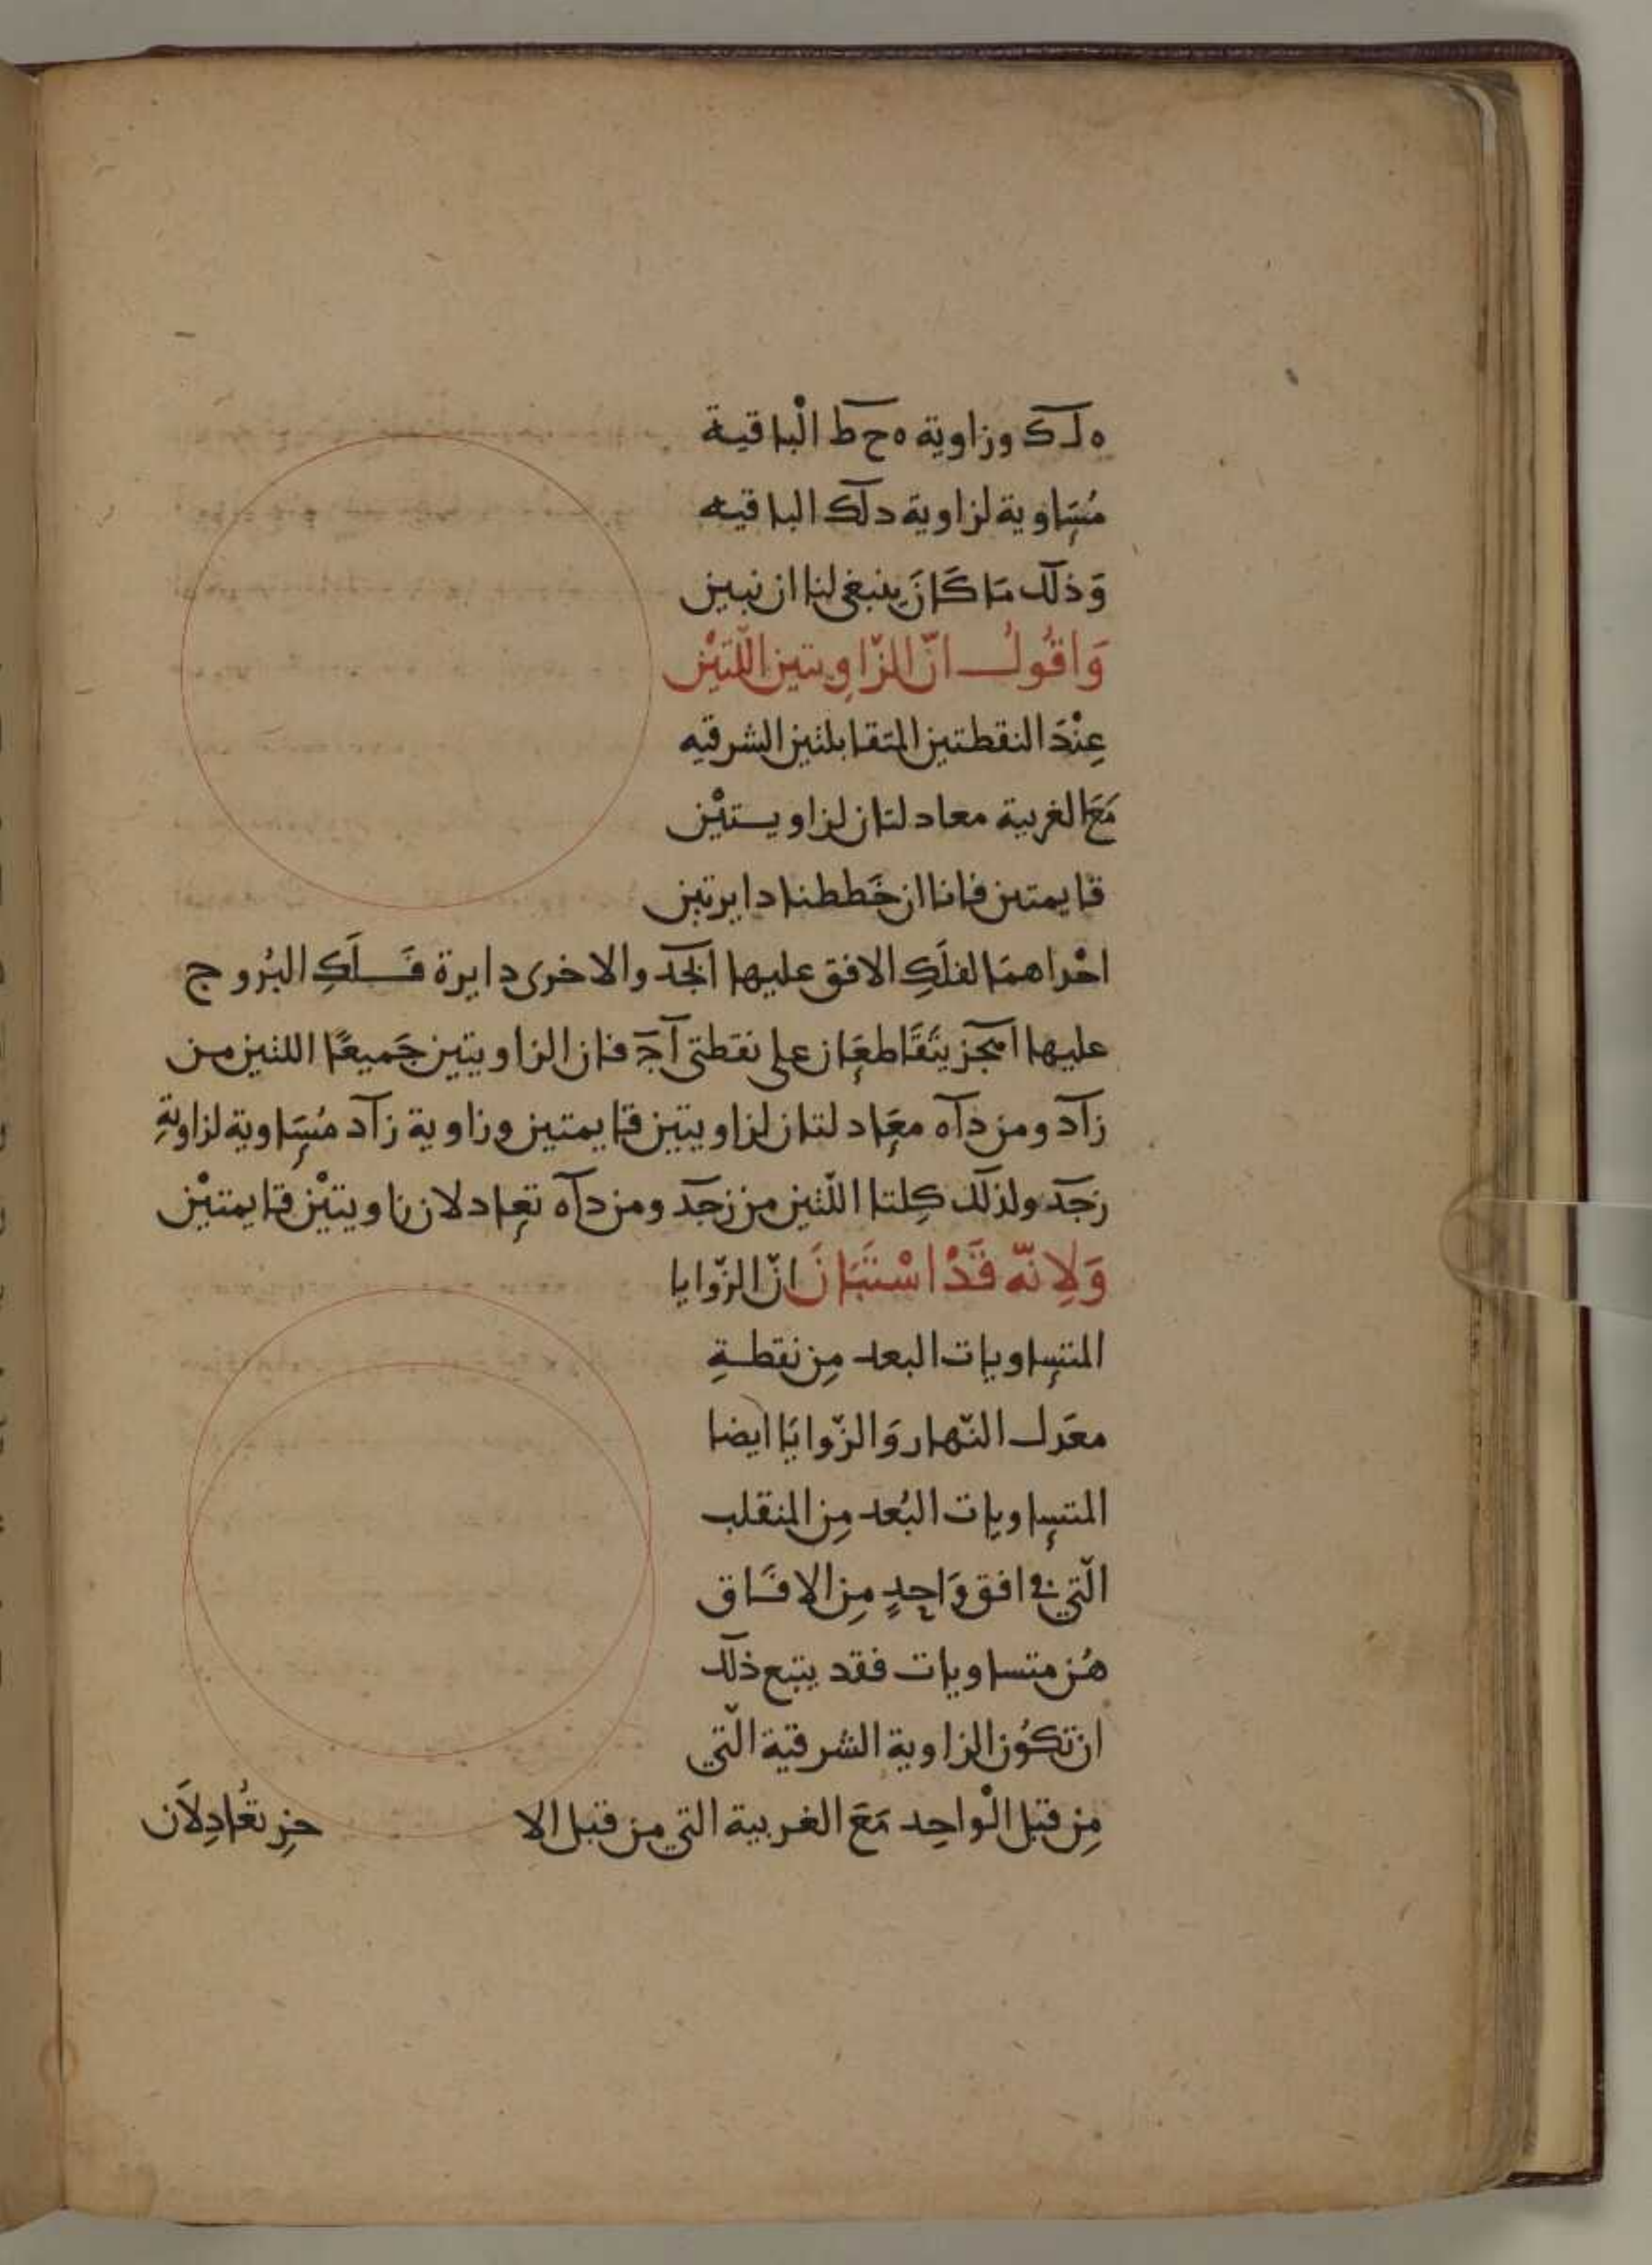 ه ل ك وزاوية ه ح ط الْباقية
مُسَاوية لزاوية د ل ك الباقيه
وَذلك مَا كَانَ ينبغي لنا ان نبين
وَاقُولُ انّ الزّاوِيتين اللّتيْن
عِنْدَ النقطتين المتقابلتين الشرقيه
مَعَ الغربية معادلتان لزاويتيْن
قايمتين فانا ان خَططنا دايرتين
احْداهمَا لفلَكِ الافق عليها ابجد والاخرى دايرة فَلَكِ البُروج
عليها اهجز يتَقَاطعَان على نقطتي آ ج فان الزاويتين جَميعًا اللتين من
زاد ومن داه معَادلتان لزاويتين قايمتين وزاوية زاد مُسَاوية لزاويةِ
زجد ولذلك كِلتا اللّتين من زجد ومن داه تعادلان زاويتيْن قايمتيْن
وَلِانّه قَدْ اسْتَبَانَ انّ الزّوايا
المتساويات البعد مِن نقطةِ
معَدل النّهار وَالزّوايَا ايضا
المتساويات البُعد مِن المنقلب
الّتي في افق وَاحِدٍ مِن الافَاق
هُن متساويات فقد يتبع ذلك
ان تكُون الزاوية الشرقية الّتي
مِن قبل الْواحِد مَعَ الغربية التي من قبل الا خرِ تعُادِلَان